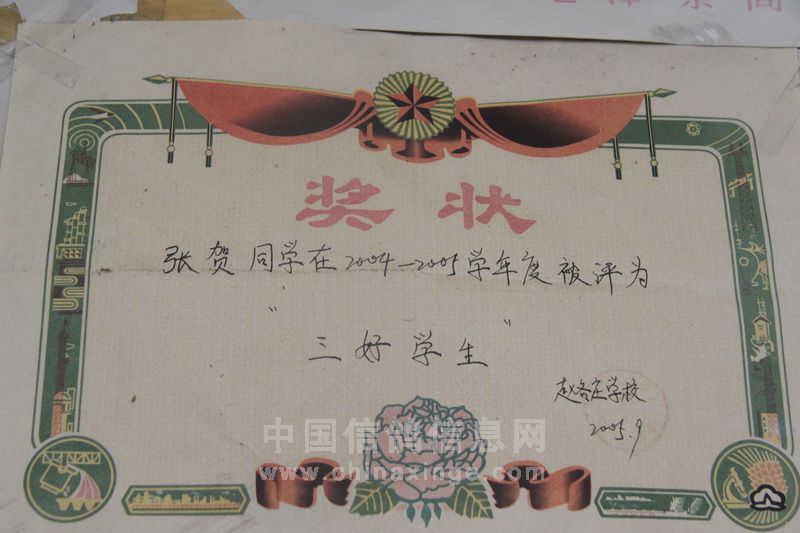 奖状
张贺同学在2004—2005学年度被评为
"三好学生"
赵各庄学校
2005.9
中国信鸽信息网
www.chinaxinge.com